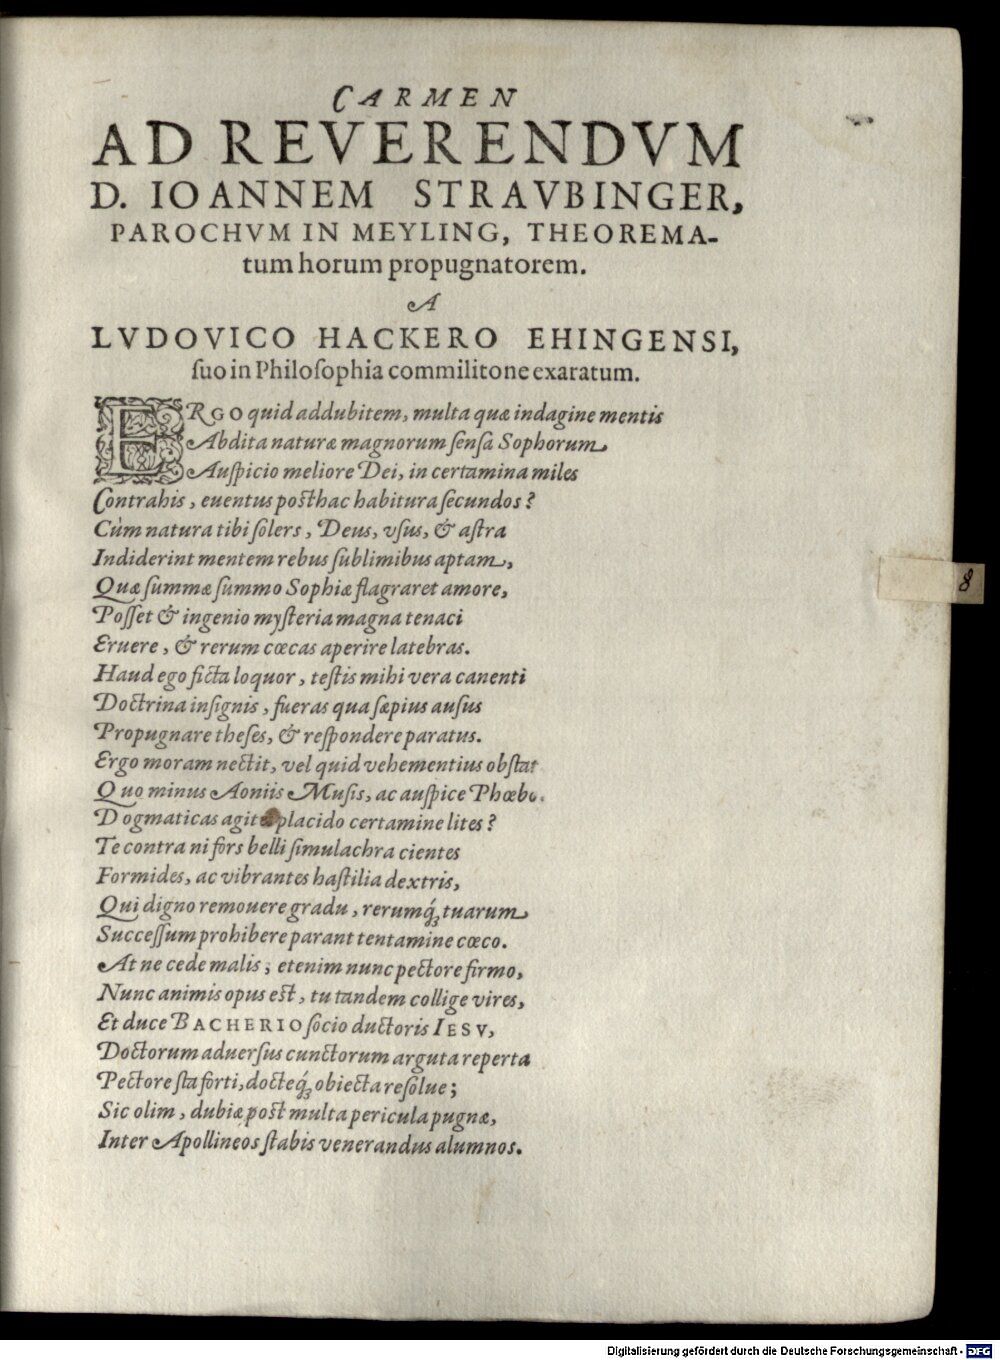 CARMEN
AD REVERENDVM
D. IOANNEM STRAVBINGER,
PAROCHVM IN MEYLING, THEOREMA-
tum horum propugnatorem.
A
LVDOVICO HACKERO EHINGENSI,
ſuo in Philoſophia commilitone exaratum.
ERGO quid addubitem, multa quæ indagine mentis
Abdita naturæ magnorum ſenſa Sophorum
Auſpicio meliore Dei, in certamina miles
Contrahis, euentus poſthac habitura ſecundos?
Cùm natura tibi ſolers, Deus, vſus, & aſtra
Indiderint mentem rebus ſublimibus aptam,
Quæ ſummæ ſummo Sophiæ flagraret amore,
Poſſet & ingenio myſteria magna tenaci
Eruere, & rerum cœcas aperire latebras.
Haud ego ficta loquor, teſtis mihi vera canenti
Doctrina inſignis, fueras qua ſæpius auſus
Propugnare theſes, & reſpondere paratus.
Ergo moram nectit, vel quid vehementius obſtat
Quo minus Aoniis Muſis, ac auſpice Phœbo.
Dogmaticas agites placido certamine lites?
Te contra ni fors belli ſimulachra cientes
Formides, ac vibrantes haſtilia dextris,
Qui digno remouere gradu, rerumq́; tuarum
Succeſſum prohibere parant tentamine cœco.
At ne cede malis, etenim nunc pectore firmo,
Nunc animis opus eſt, tu tandem collige vires,
Et duce BACHERIO ſocio ductoris IESV,
Doctorum aduerſus cunctorum arguta reperta
Pectore ſta forti, docteq́; obiecta reſolue;
Sic olim, dubiæ poſt multa pericula pugnæ,
Inter Apollineos ſtabis venerandus alumnos.
8
Digitalisierung gefördert durch die Deutsche Forschungsgemeinschaft - DFG